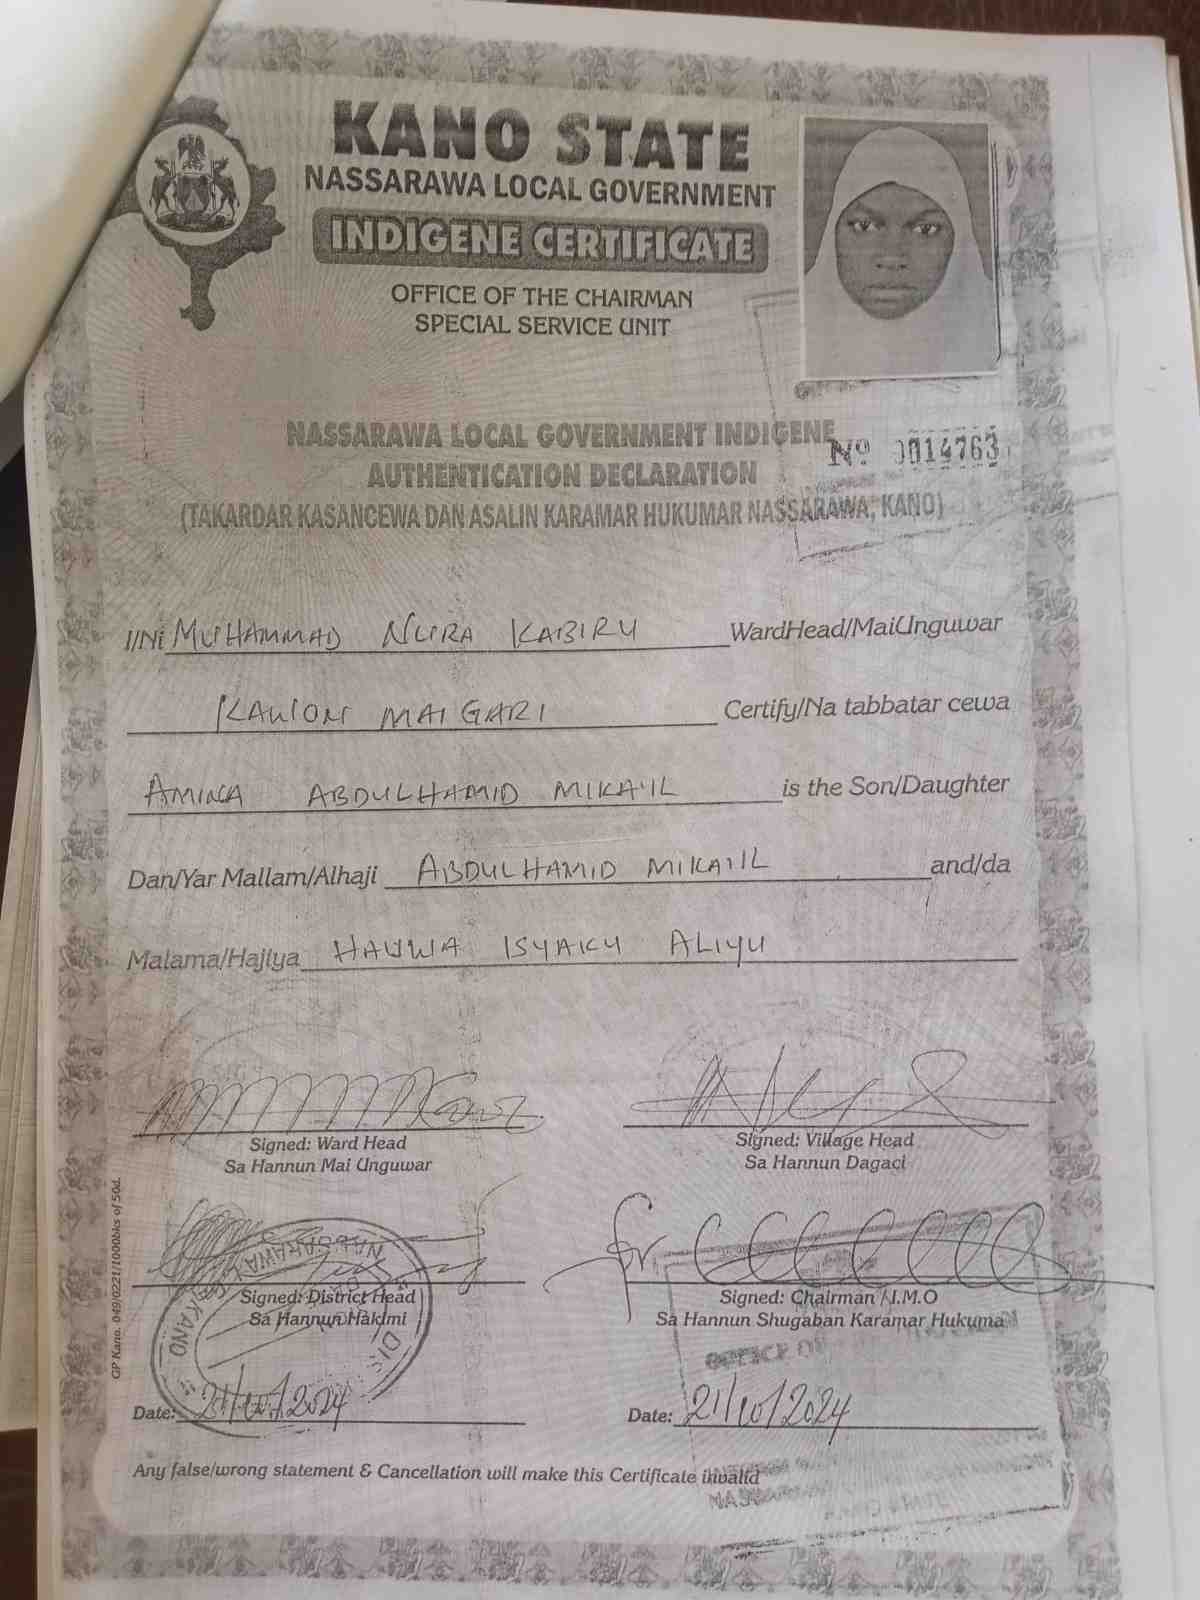 KANO STATE
NASSARAWA LOCAL GOVERNMENT
INDIGENE CERTIFICATE
OFFICE OF THE CHAIRMAN
SPECIAL SERVICE UNIT
NASSARAWA LOCAL GOVERNMENT INDIGENE
AUTHENTICATION DECLARATION
Nº 0014763
(TAKARDAR KASANCEWA DAN ASALIN KARAMAR HUKUMAR NASSARAWA, KANO)
I/Ni MUHAMMAD NURA KABIRU WardHead/MaiUnguwar
KAWON MAIGARI Certify/Na tabbatar cewa
AMINA ABDULHAMID MIKA'IL is the Son/Daughter
Dan/Yar Mallam/Alhaji ABDULHAMID MIKA'IL and/da
Malama/Hajiya HAUWA ISYAKU ALIYU
Signed: Ward Head
Sa Hannun Mai Unguwar
Signed: Village Head
Sa Hannun Dagaci
Signed: District Head
Sa Hannun Hakimi
for
Signed: Chairman / I.M.O
Sa Hannun Shugaban Karamar Hukuma
NASSARAWA
KANO
OFFICE OF
Date: 21/10/2024
Date: 21/10/2024
Any false/wrong statement & Cancellation will make this Certificate invalid
GP Kano. 049/0221/1000bks of 50d.